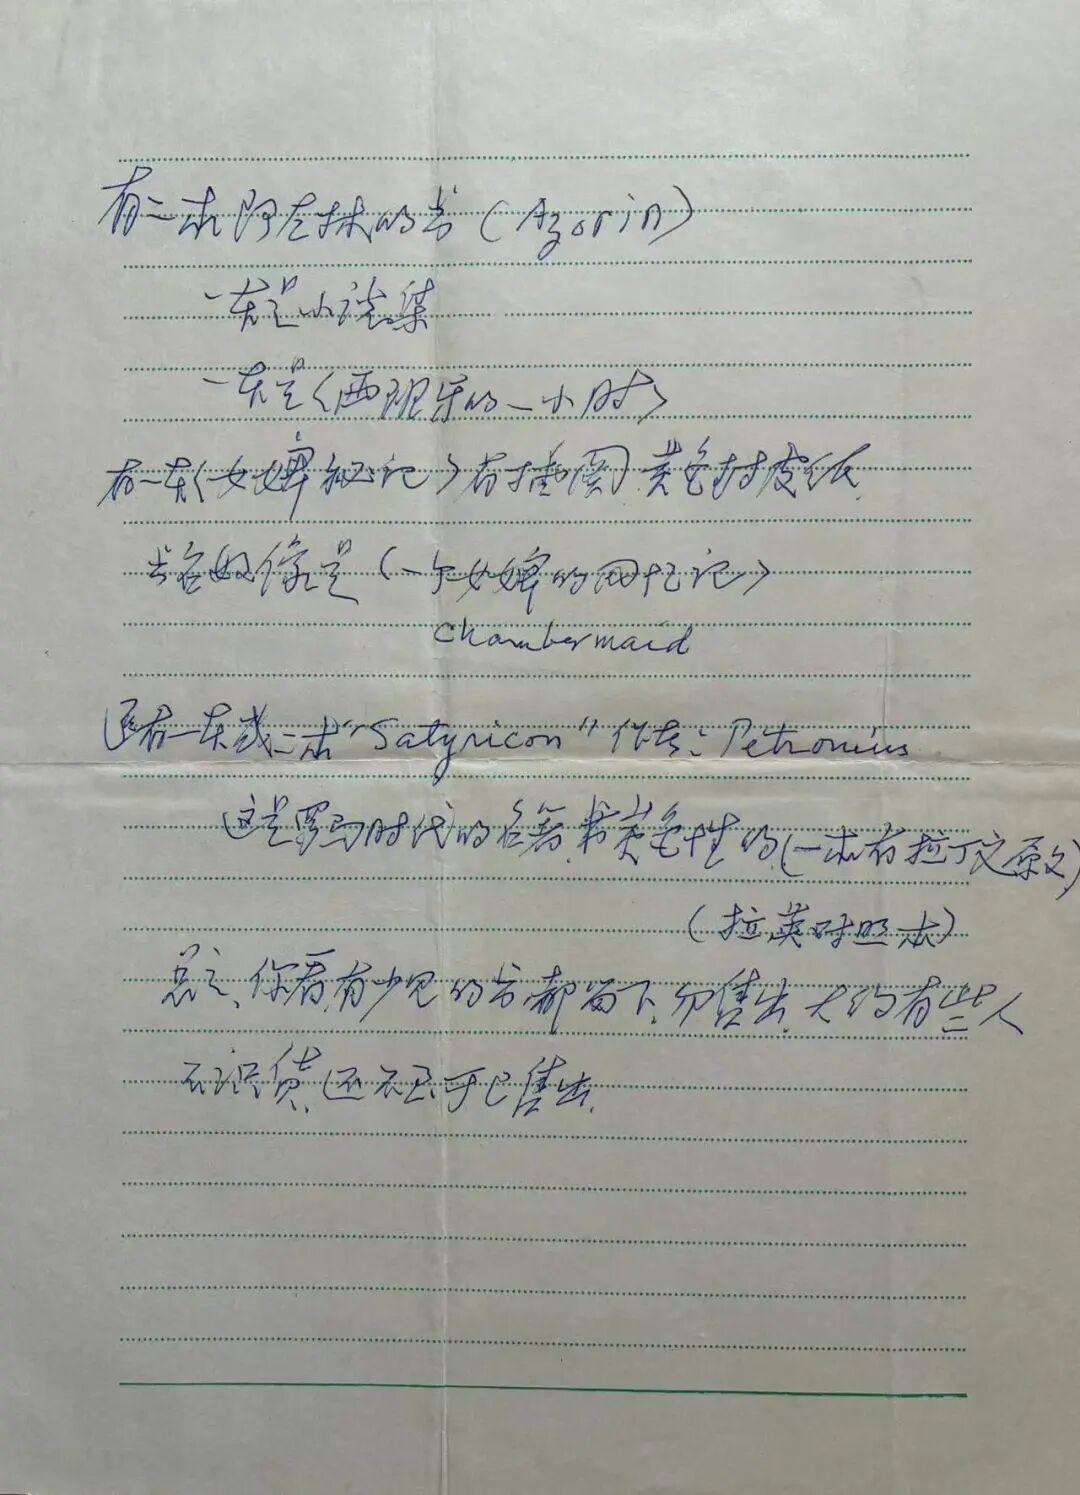 有二本阿左林的书（Azorin）
一本是小说集
一本是〈西班牙的一小时〉
有一本〈女婢秘记〉有插图 黄色封皮纸
书名好像是（一个女婢的回忆记〉
Chambermaid
还有一本或二本"Satyricon"作者：Petronius
这是罗马时代的名著，黄色性的（一本有拉丁文原文）
（拉英对照本）
总之、你看有少见的书都留下、勿售出、大约有些人
不识货、还不至于已售出、